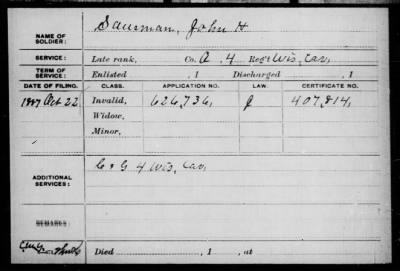 NAME OF SOLDIER: Sausman, John H
SERVICE: Late rank, Co. A, 4 Reg't Wis, Cav,
TERM OF SERVICE: Enlisted , 1 Discharged , 1
DATE OF FILING. CLASS. APPLICATION NO. LAW. CERTIFICATE NO.
1887 Oct 22, Invalid, 626,736, J 407,814,
Widow,
Minor,
ADDITIONAL SERVICES: C & G 4 Wis, Cav,
REMARKS:
Died , 1 , at